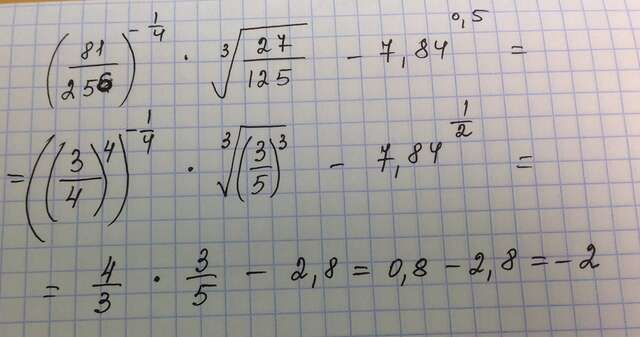 (81/256)^(-1/4) · ∛(27/125) - 7,84^0,5 =
= ((3/4)^4)^(-1/4) · ∛((3/5)^3) - 7,84^(1/2) =
= 4/3 · 3/5 - 2,8 = 0,8 - 2,8 = -2